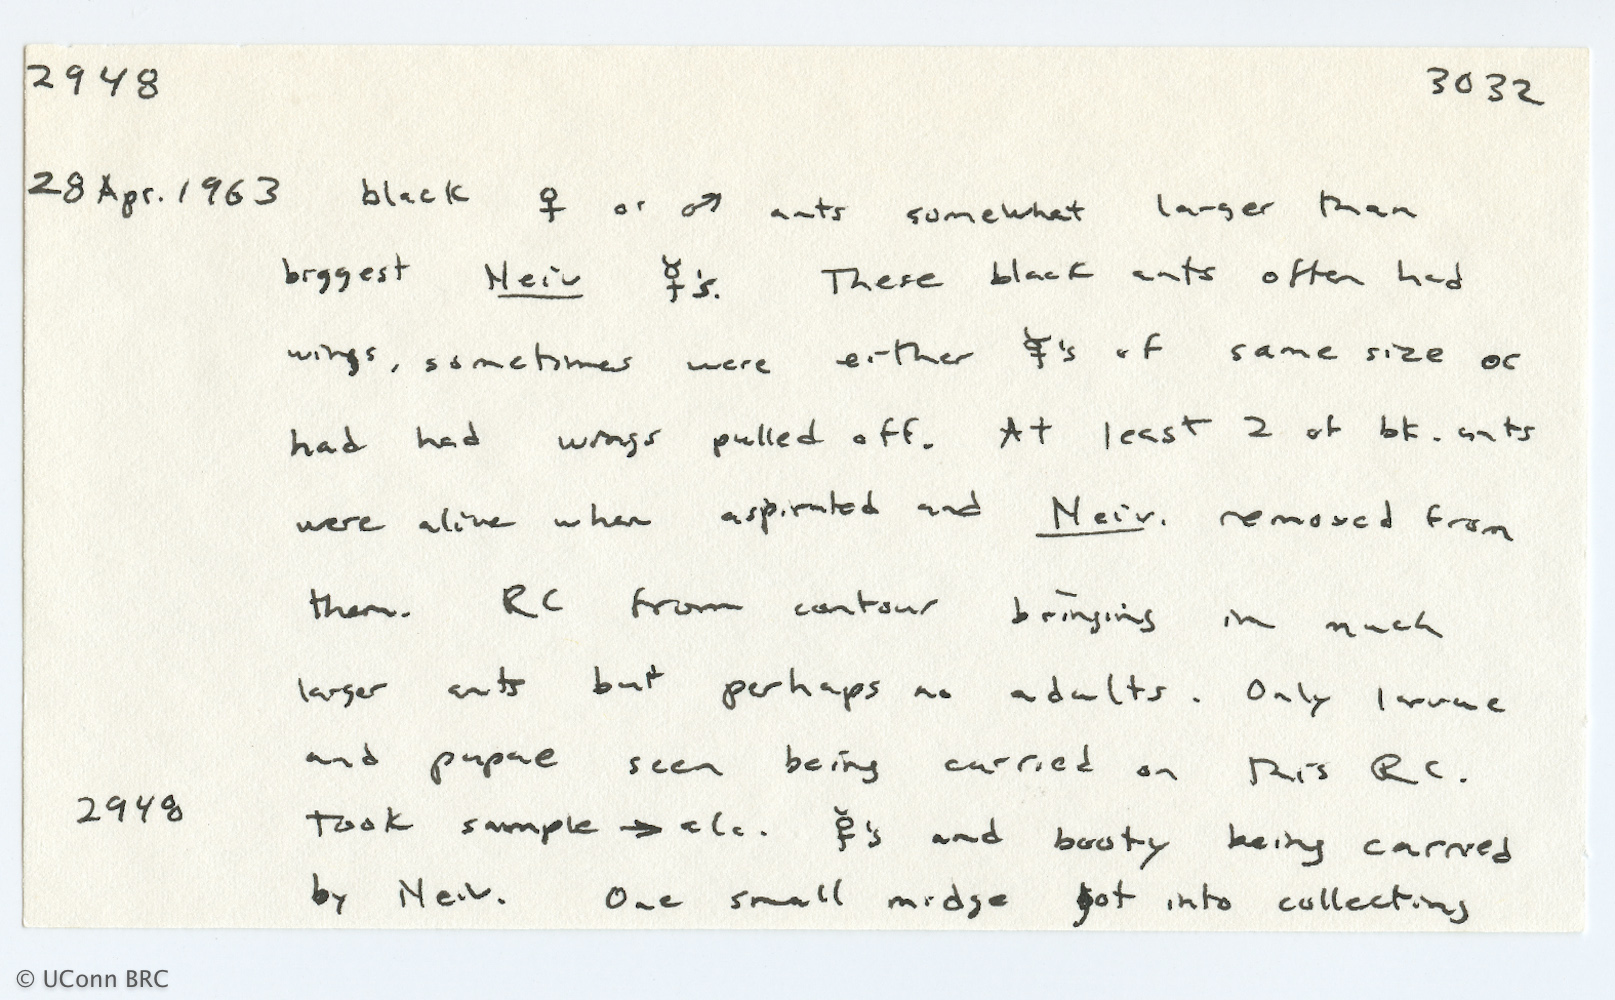 2948 3032
28 Apr. 1963 black ♀ or ♂ ants somewhat larger than
biggest Neiv ☿'s. These black ants often had
wings, sometimes were either ☿'s of same size or
had had wings pulled off. At least 2 of bk. ants
were alive when aspirated and Neiv. removed from
them. RC from contour bringing in much
larger ants but perhaps no adults. Only larvae
and pupae seen being carried on this RC.
2948 Took sample → alc. ☿'s and booty being carried
by Neiv. One small midge got into collecting
© UConn BRC